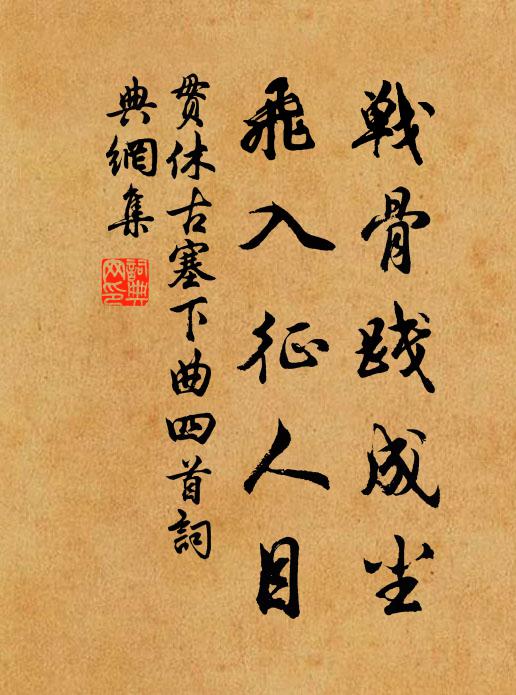 戦骨践成尘
飛入征人目
貫休古塞下曲四首詞
典網集
詞典網印